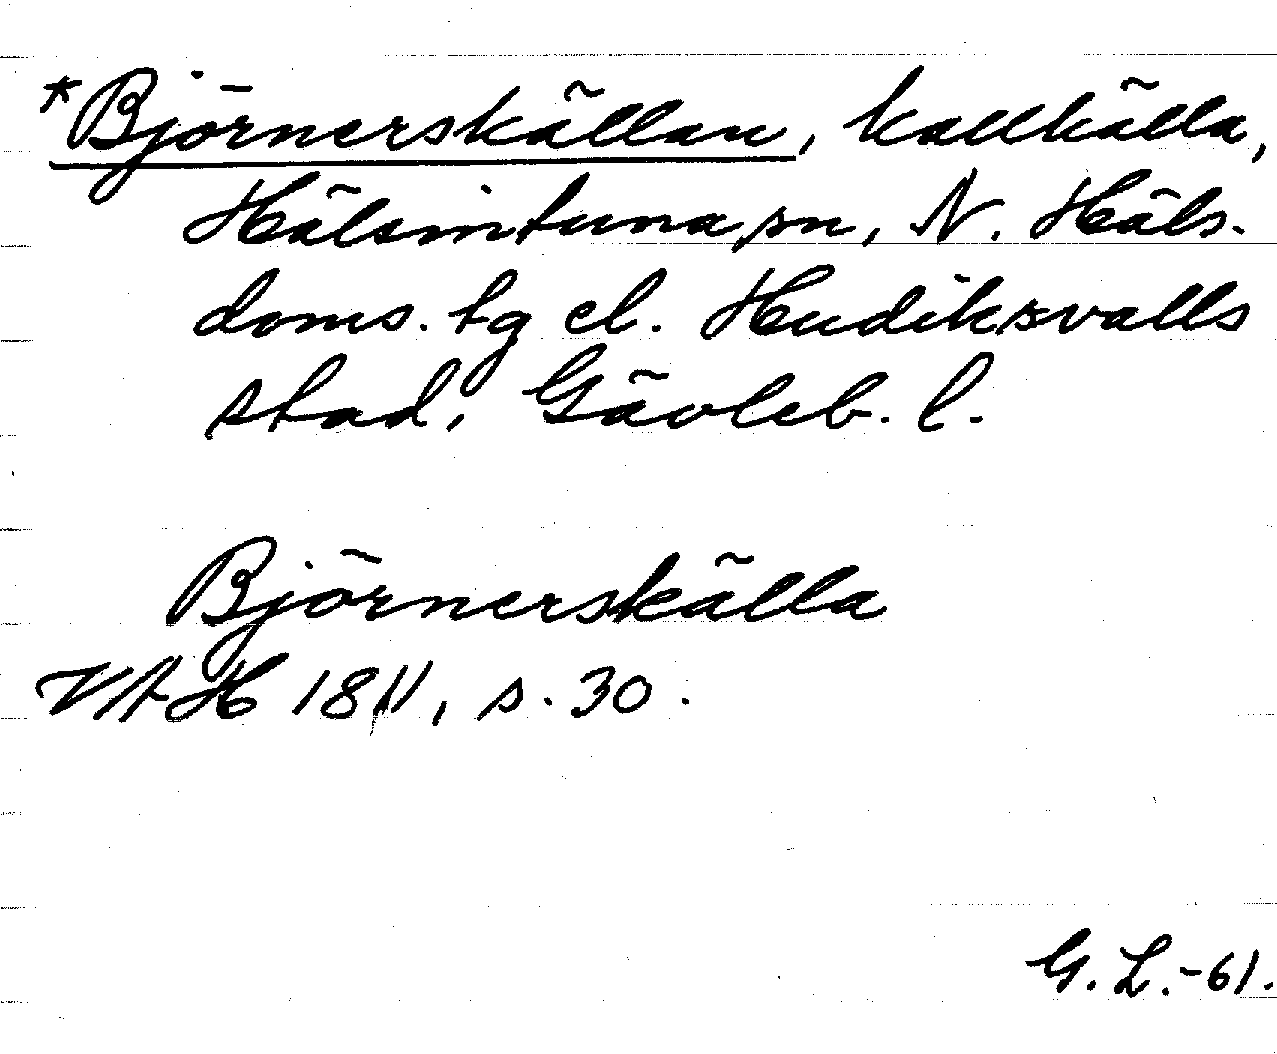 *Björnerskällan, kallkälla,
Hälsingtuna sn, N. Häls.
doms. tg el. Hudiksvalls
stad, Gävleb. l.
Björnerskälla
VAH 1811, s. 30.
G. L. -61.